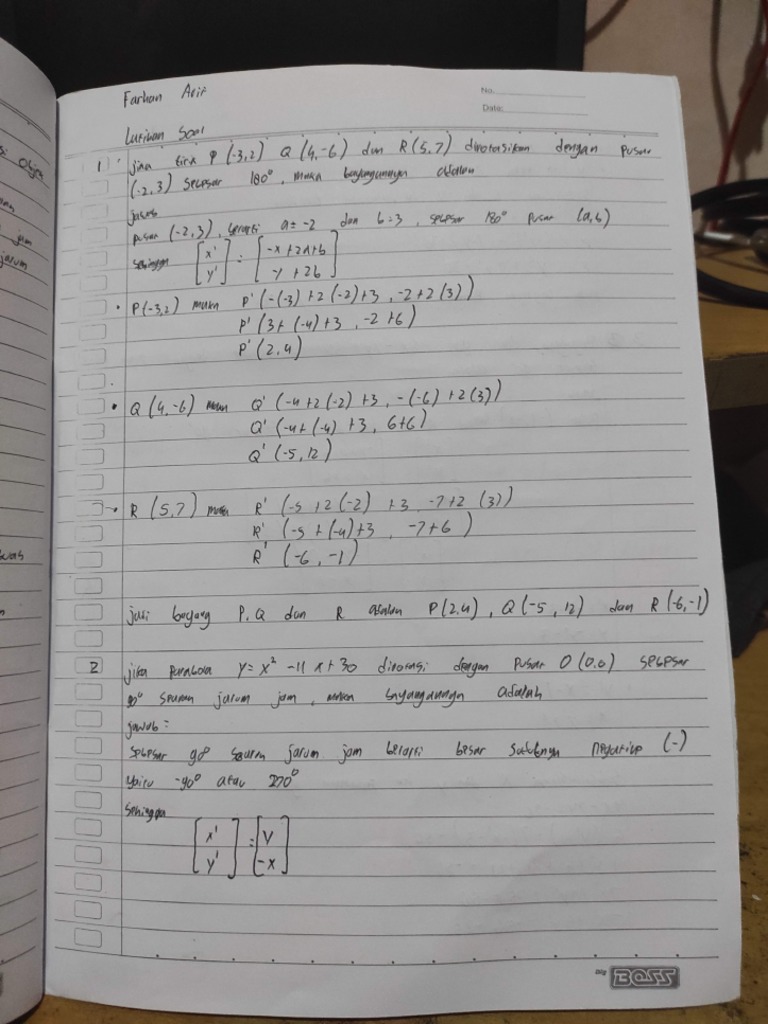 Farhan Arif
No.
Date:
Latihan Soal
1. jika titik P (-3,2) Q (4,-6) dan R (5,7) dirotasikan dengan pusat
(-2,3) sebesar 180°, maka bayangannya adalah
jawab
pusat (-2,3), berarti a = -2 dan b = 3, sebesar 180° pusat (a,b)
sehingga [x' y'] = [-x + 2a + b -y + 2b]
• P(-3,2) maka P' (-(-3) + 2 (-2) + 3, -2 + 2 (3))
P' (3 + (-4) + 3, -2 + 6)
P' (2,4)
• Q (4,-6) maka Q' (-4 + 2 (-2) + 3, -(-6) + 2 (3))
Q' (-4 + (-4) + 3, 6+6)
Q' (-5, 12)
• R (5,7) maka R' (-5 + 2 (-2) + 3 -7 + 2 (3))
R' (-5 + (-4) + 3, -7 + 6)
R' (-6, -1)
jadi bayang P, Q dan R adalah P(2,4), Q(-5, 12) dan R(-6,-1)
2 jika parabola y = x² - 11 x + 30 dirotasi dengan pusat O (0,0) sebesar
90° searah jarum jam, maka bayangannya adalah
jawab :
sebesar 90° searah jarum jam berarti besar sudutnya negatip (-)
yaitu -90° atau 270°
sehingga
[x' y'] = [y -x]
BOSS